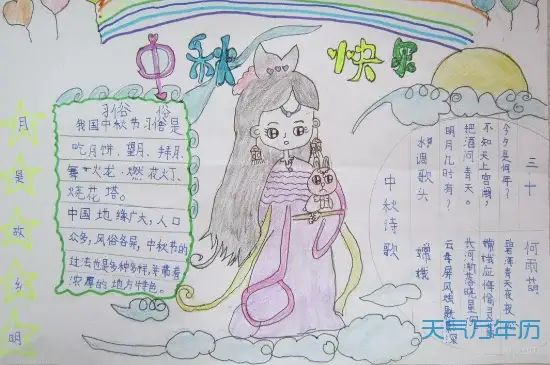 中秋 快乐
月是故乡明
我国中秋节习俗是
吃月饼、望月、拜月、
舞火龙、燃花灯、
烧花塔。
中国地缘广大,人口
众多,风俗各异,中秋节的
过法也是多种多样,并带着
浓厚的地方特色。
中秋诗歌
水调歌头
明月几时有?
把酒问青天。
不知天上宫阙,
今夕是何年?
嫦娥
云母屏风烛影深
长河渐落晓星沉
嫦娥应悔偷灵
碧海青天夜夜
三十
何雨萌
天气万年历